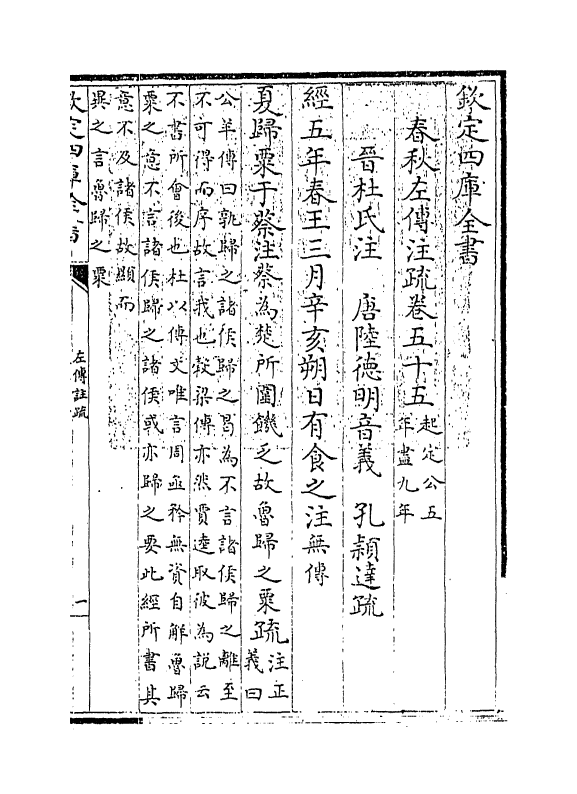 欽定四庫全書
春秋左傳注疏卷五十五
起定公五
年盡九年
晉杜氏注 唐陸德明音義 孔穎達疏
經五年春王三月辛亥朔日有食之注無傳
夏歸粟于蔡注蔡為楚所圍饑乏故魯歸之粟疏
注正
義曰
公羊傳曰孰歸之諸侯歸之曷為不言諸侯歸之離至
不可得而序故言我也穀梁傳亦然賈逵取彼為說云
不書所會後也杜以傳文唯言周亟矜無資自解魯歸
粟之意不言諸侯歸之諸侯或亦歸之要此經所書其
意不及諸侯故顯而
異之言魯歸之粟
欽定四庫全書
左傳註疏
一